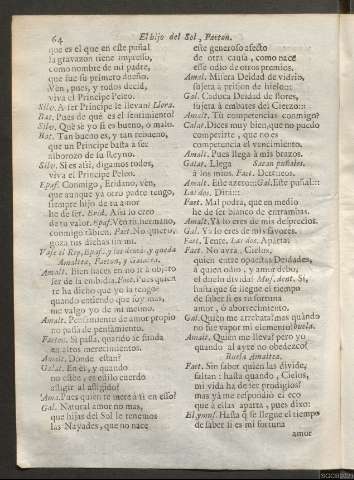 64 El hijo del Sol, Faeton.
que es el que en este puñal
la gravazon tiene impresso,
como nombre de mi padre,
que fue su primero dueño.
Ven, pues, y todos decid,
viva el Principe Peleo.
Silv. A ser Principe le llevan! Llora.
Bat. Pues de què es el sentimiento?
Silv. Què sè yo si es bueno, ò malo.
Bat. Tan bueno es, y tan
que un Principe basta à ser
de su Reyno.
Silv. Si es assi, digamos todos,
viva el Principe Peleo.
Epaf. Conmigo, Eridano, ven,
que aunque yà otro padre tengo,
siempre hijo de tu amor
he de ser. Erid. Assi lo creo
de tu valor. Epaf. Ven tu hermano,
conmigo tãbien. Faet. No quiero,
goza tus dichas sin mi.
Vase el Rey, Epaf. y los demàs, y queda
Amaltea, Faeton, y Galatea.
Amalt. Bien haces en no ir à
ser de la embidia. Faet. Pues quien
te ha dicho que yo la tengo
quando entiendo que soy mas,
me valgo yo de mi mesmo.
Amalt. Pensamiento de amor propio
no passa de pensamiento.
Faeton. Si passa, quando se funda
en altos merecimientos.
Amalt. Donde estàn?
Galat. En èl, y quando
no estèn, es estilo cuerdo
afligir al afligido?
Ama. Pues quien te mete à ti en esso?
Gal. Natural amor no mas,
que hijas del Sol le tenemos
las Nayades, que no nace
este generoso afecto
de otra causa, como nace
esse odio de otros premios.
Amal. Misera Deidad de vidrio,
sujeta à prision de hielo:::
Gal. Caduca Deidad de flores,
sujeta à embates del Cierzo:::
Amalt. Tù competencias conmigo?
Galat. Dices muy bien, que no puedo
competirte, que no es
competencia el vencimiento.
Amalt. Pues llega à mis brazos.
Galat. Llega Sacan puñales.
à los mios. Faet. Deteneos.
Amalt. Este azero::: Gal. Este puñal:::
Las dos. Dirà:::
Faet. Mal podrà, que en medio
he de ser blanco de entrambas.
Amalt. Yà lo eres de mis desprecios.
Gal. Yà lo eres de mis favores.
Faet. Tente. Las dos. Aparta.
Faet. No avrà, Cielos,
quien entre opuestas Deidades,
à quien odio, y amor debo,
el duelo divida? Mus. dent. Sì,
hasta que se llegue el tiempo
de saber si es tu fortuna
amor, ò aborrecimiento.
Gal. Quièn me arrebata? mas quando
no fue vapor mi elemento! buela.
Amalt. Quièn me lleva? pero yo
quando al ayre no obedezco?
Buela Amaltea.
Faet. Sin saber quien las divide,
faltan: hasta quando, Cielos,
mi vida ha de ser prodigios?
mas yà me respondiò el eco
que à ellas aparta, pues dixo:
El y music. Hasta q̃ se llegue el tiempo
de saber si es mi fortuna
amor